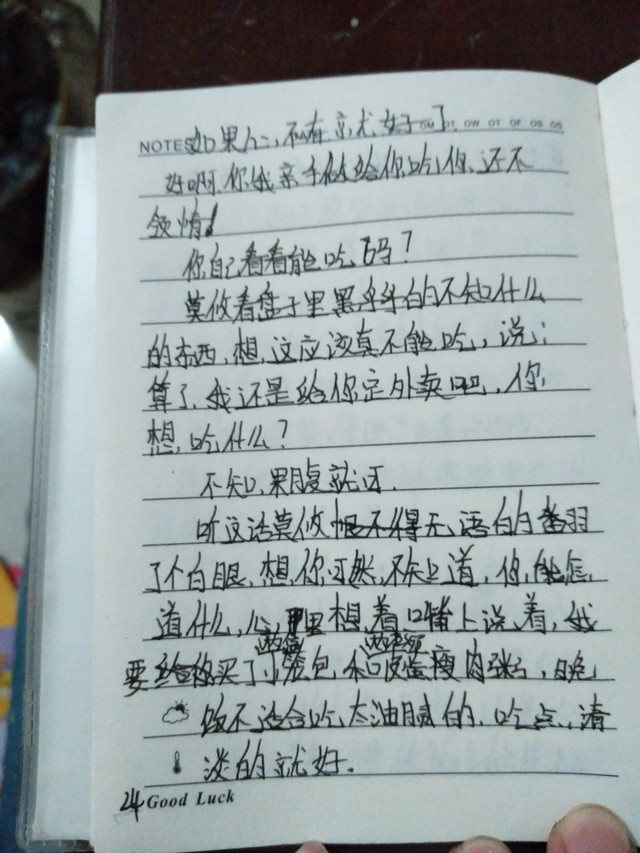 NOTES 如果人、不在京尤好了. OM OT OW OT OF OS OS
好啊,你我亲手做给你吃,你,还不
领情!
你自己看看能吃,吗?
莫攸看盘子里黑乎乎的不知什么
的东西,想,这应该真不能吃,说;
算了,我还是给你定外卖吧,你,
想,吃什么?
不知,果腹就讶.
听这话莫攸恨不得无语的翻
了个白眼,想,你可然,不知道,你,能怎
道什么,心,里想着口嘴上说着,我
要给你买了小笼包,和皮蛋瘦肉粥,晚
饭不适合吃,太油腻的,吃点,清
淡的就好.
24 Good Luck